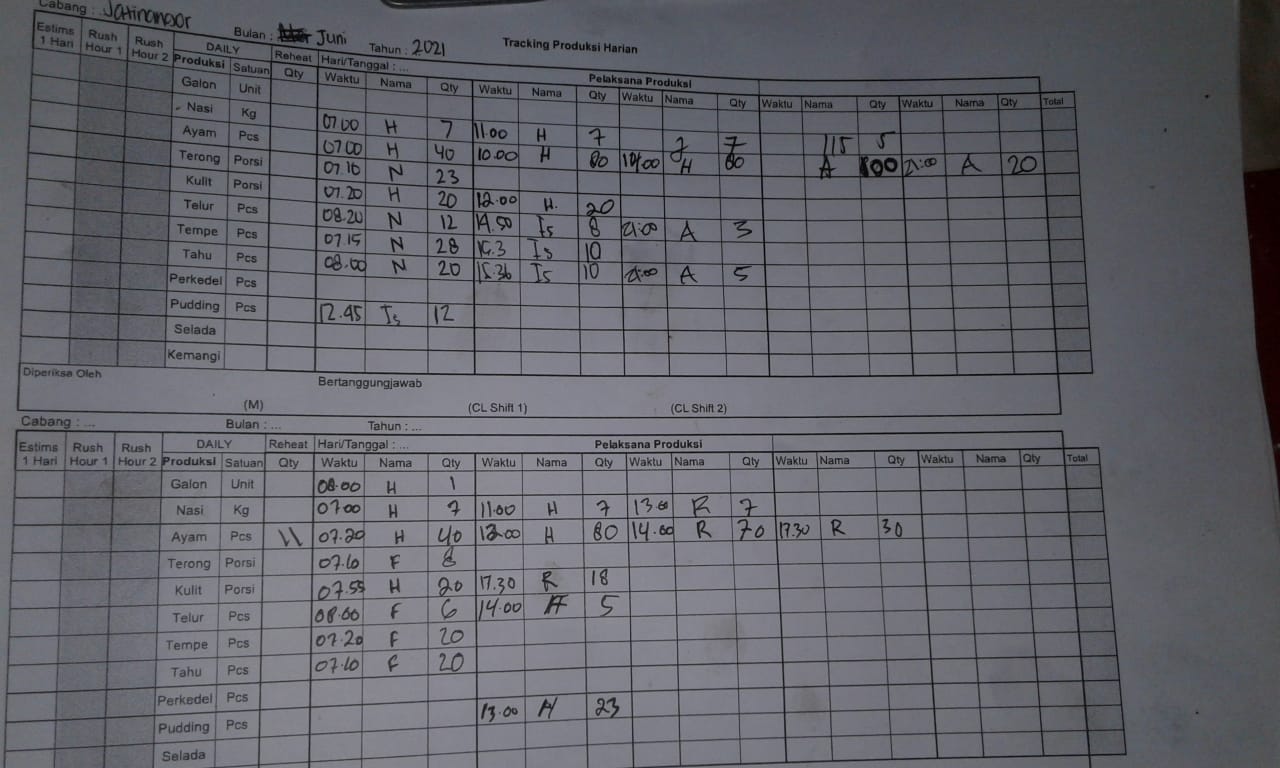 Cabang : Jatinangor Bulan : Juni Tahun : 2021 Tracking Produksi Harian
Estims 1 Hari Rush Hour 1 Rush Hour 2 DAILY Reheat Hari/Tanggal : ... Pelaksana Produksi
Produksi Satuan Qty Waktu Nama Qty Waktu Nama Qty Waktu Nama Qty Waktu Nama Qty Waktu Nama Qty Total
Galon Unit
Nasi Kg 07.00 H 7 11.00 H 7 7 5
Ayam Pcs 07.00 H 40 10.00 H 80 H 80 A 100 21:00 A 20
Terong Porsi 07.10 N 23
Kulit Porsi 07.20 H 20 12.00 H. 20
Telur Pcs 08.20 N 12 14.50 Is 8 21:00 A 3
Tempe Pcs 07.15 N 28 Is 10
Tahu Pcs 08.00 N 20 15.36 Is 10 21:00 A 5
Perkedel Pcs
Pudding Pcs 12.45 Is 12
Selada
Kemangi
Diperiksa Oleh Bertanggungjawab
(M) (CL Shift 1) (CL Shift 2)
Cabang : ... Bulan : ... Tahun : ...
Estims 1 Hari Rush Hour 1 Rush Hour 2 DAILY Reheat Hari/Tanggal : ... Pelaksana Produksi
Produksi Satuan Qty Waktu Nama Qty Waktu Nama Qty Waktu Nama Qty Waktu Nama Qty Waktu Nama Qty Total
Galon Unit 08.00 H 1
Nasi Kg 07.00 H 7 11.00 H 7 13.00 R 7
Ayam Pcs 11 07.20 H 40 H 80 14.00 R 70 17.30 R 30
Terong Porsi 07.10 F 8
Kulit Porsi 07.55 H 20 17.30 R 18
Telur Pcs 08.00 F 6 14.00 5
Tempe Pcs 07.20 F 20
Tahu Pcs 07.10 F 20
Perkedel Pcs
Pudding Pcs 13.00 23
Selada